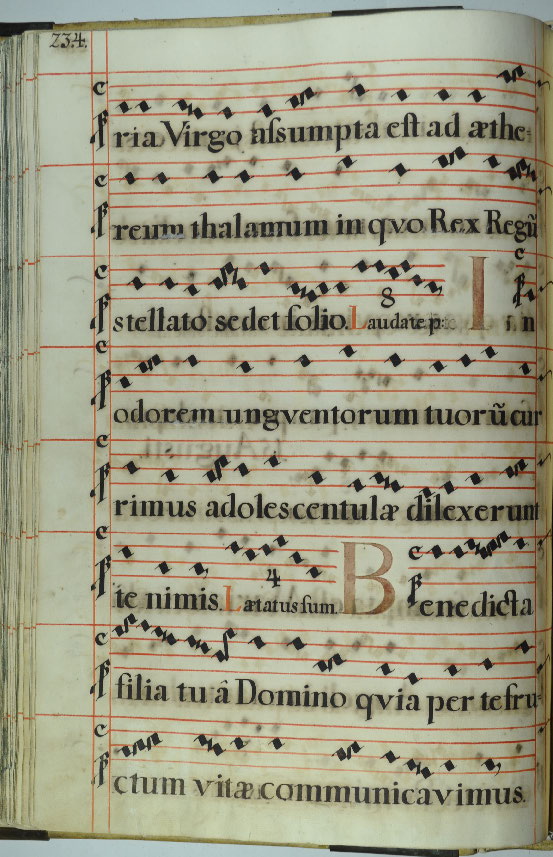 234.
ria Virgo assumpta est ad æthe-
reum thalamum in qvo Rex Regũ
stellato sedet solio. Laudate p: 8 I in
odorem ungventorum tuorũ cur
rimus adolescentulæ dilexerunt
te nimis. Lætatus sum. 4 Benedicta
filia tu â Domino qvia per te fru-
ctum vitæ communicavimus.